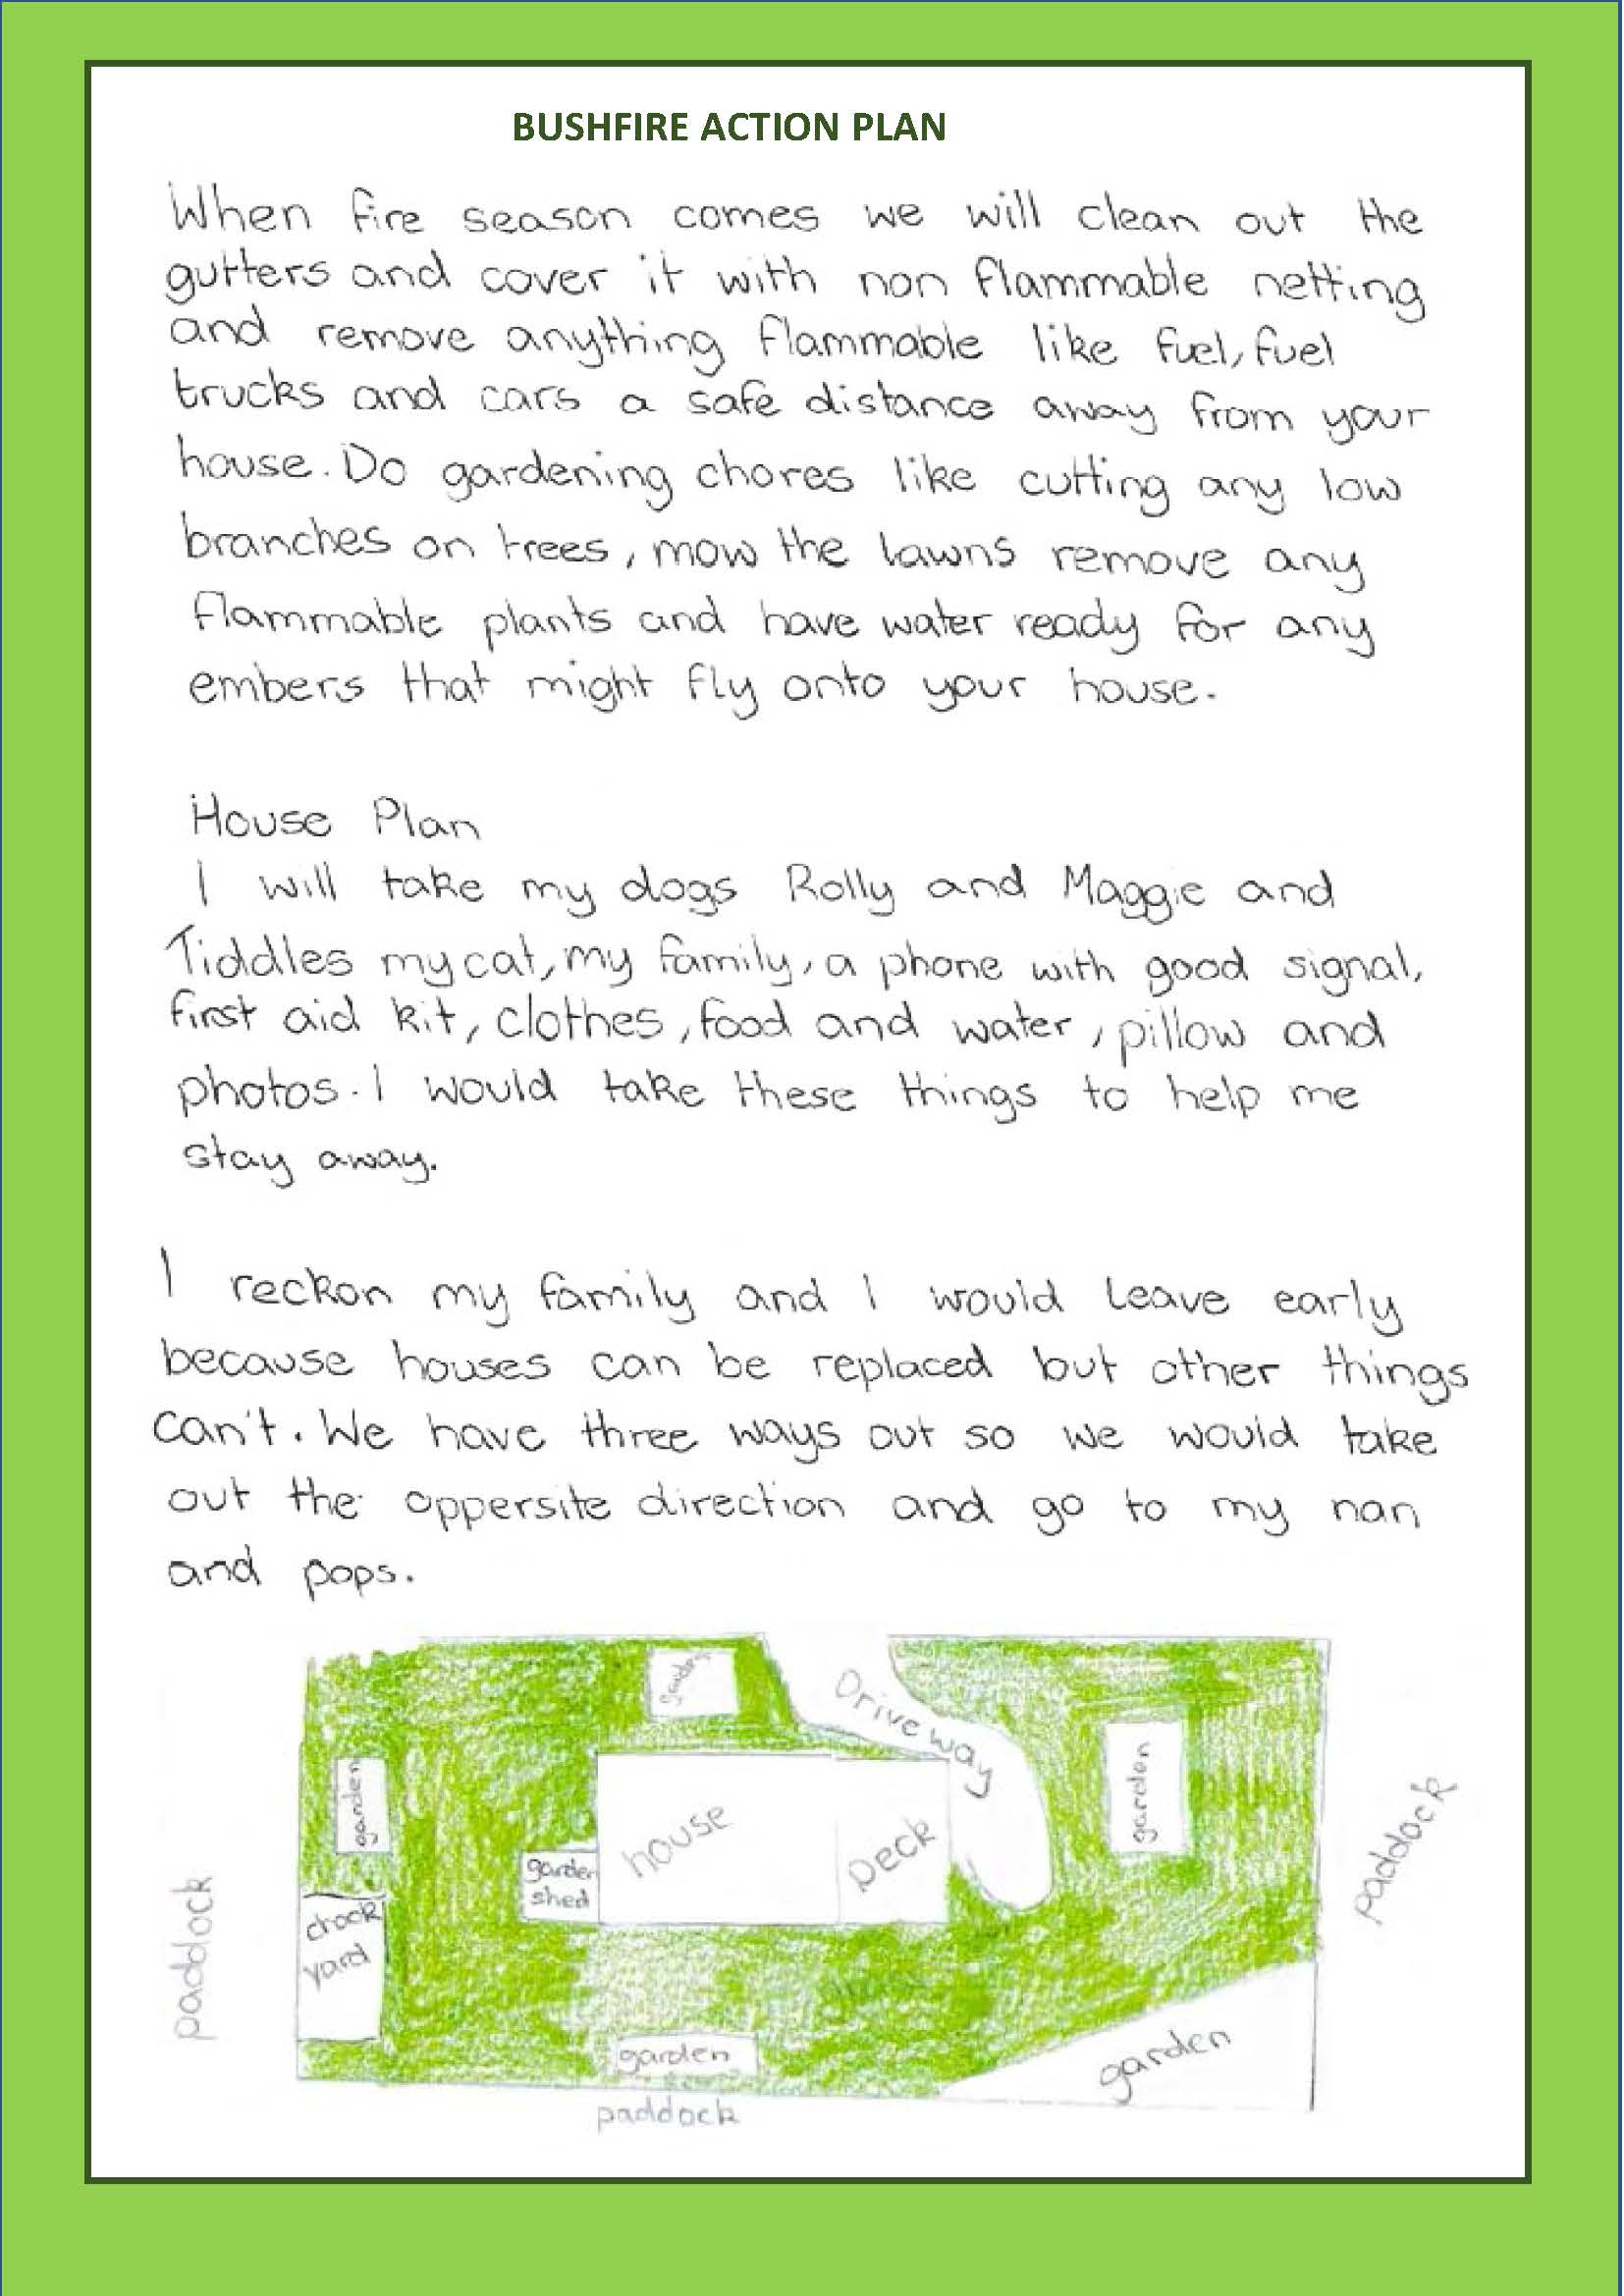 BUSHFIRE ACTION PLAN
When fire season comes we will clean out the
gutters and cover it with non flammable netting
and remove anything flammable like fuel, fuel
trucks and cars a safe distance away from your
house. Do gardening chores like cutting any low
branches on trees, mow the lawns remove any
flammable plants and have water ready for any
embers that might fly onto your house.
House Plan
I will take my dogs Rolly and Maggie and
Tiddles my cat, my family, a phone with good signal,
first aid kit, clothes, food and water, pillow and
photos. I would take these things to help me
stay away.
I reckon my family and I would leave early
because houses can be replaced but other things
can't. We have three ways out so we would take
out the oppersite direction and go to my nan
and pops.
garden
Driveway
garden
garden
house
Deck
garden
shed
chook
yard
paddock
paddock
garden
garden
paddock